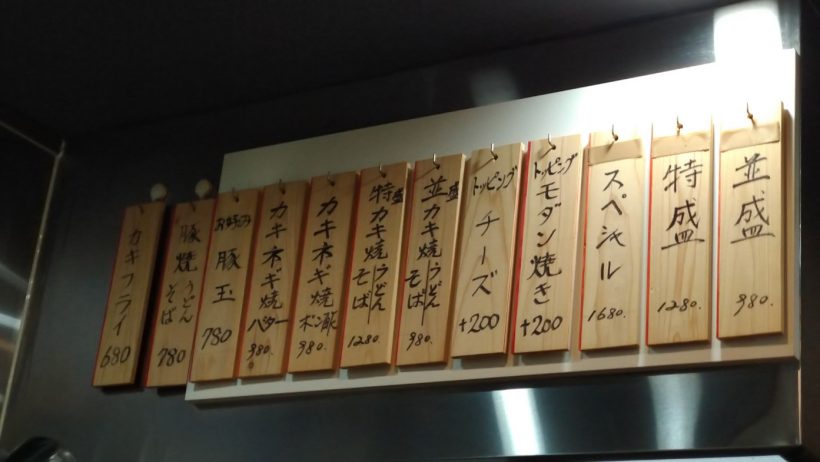 並盛
980.
特盛
1280.
スペシャル
1680.
トッピング
モダン焼き
+200
トッピング
チーズ
+200
並盛
カキ焼うどん
そば
980.
特盛
カキ焼うどん
そば
1280.
カキネギ焼
ポン酢
980.
カキネギ焼
バター
980.
お好み
豚玉
780
豚焼うどん
そば
780
カキフライ
680